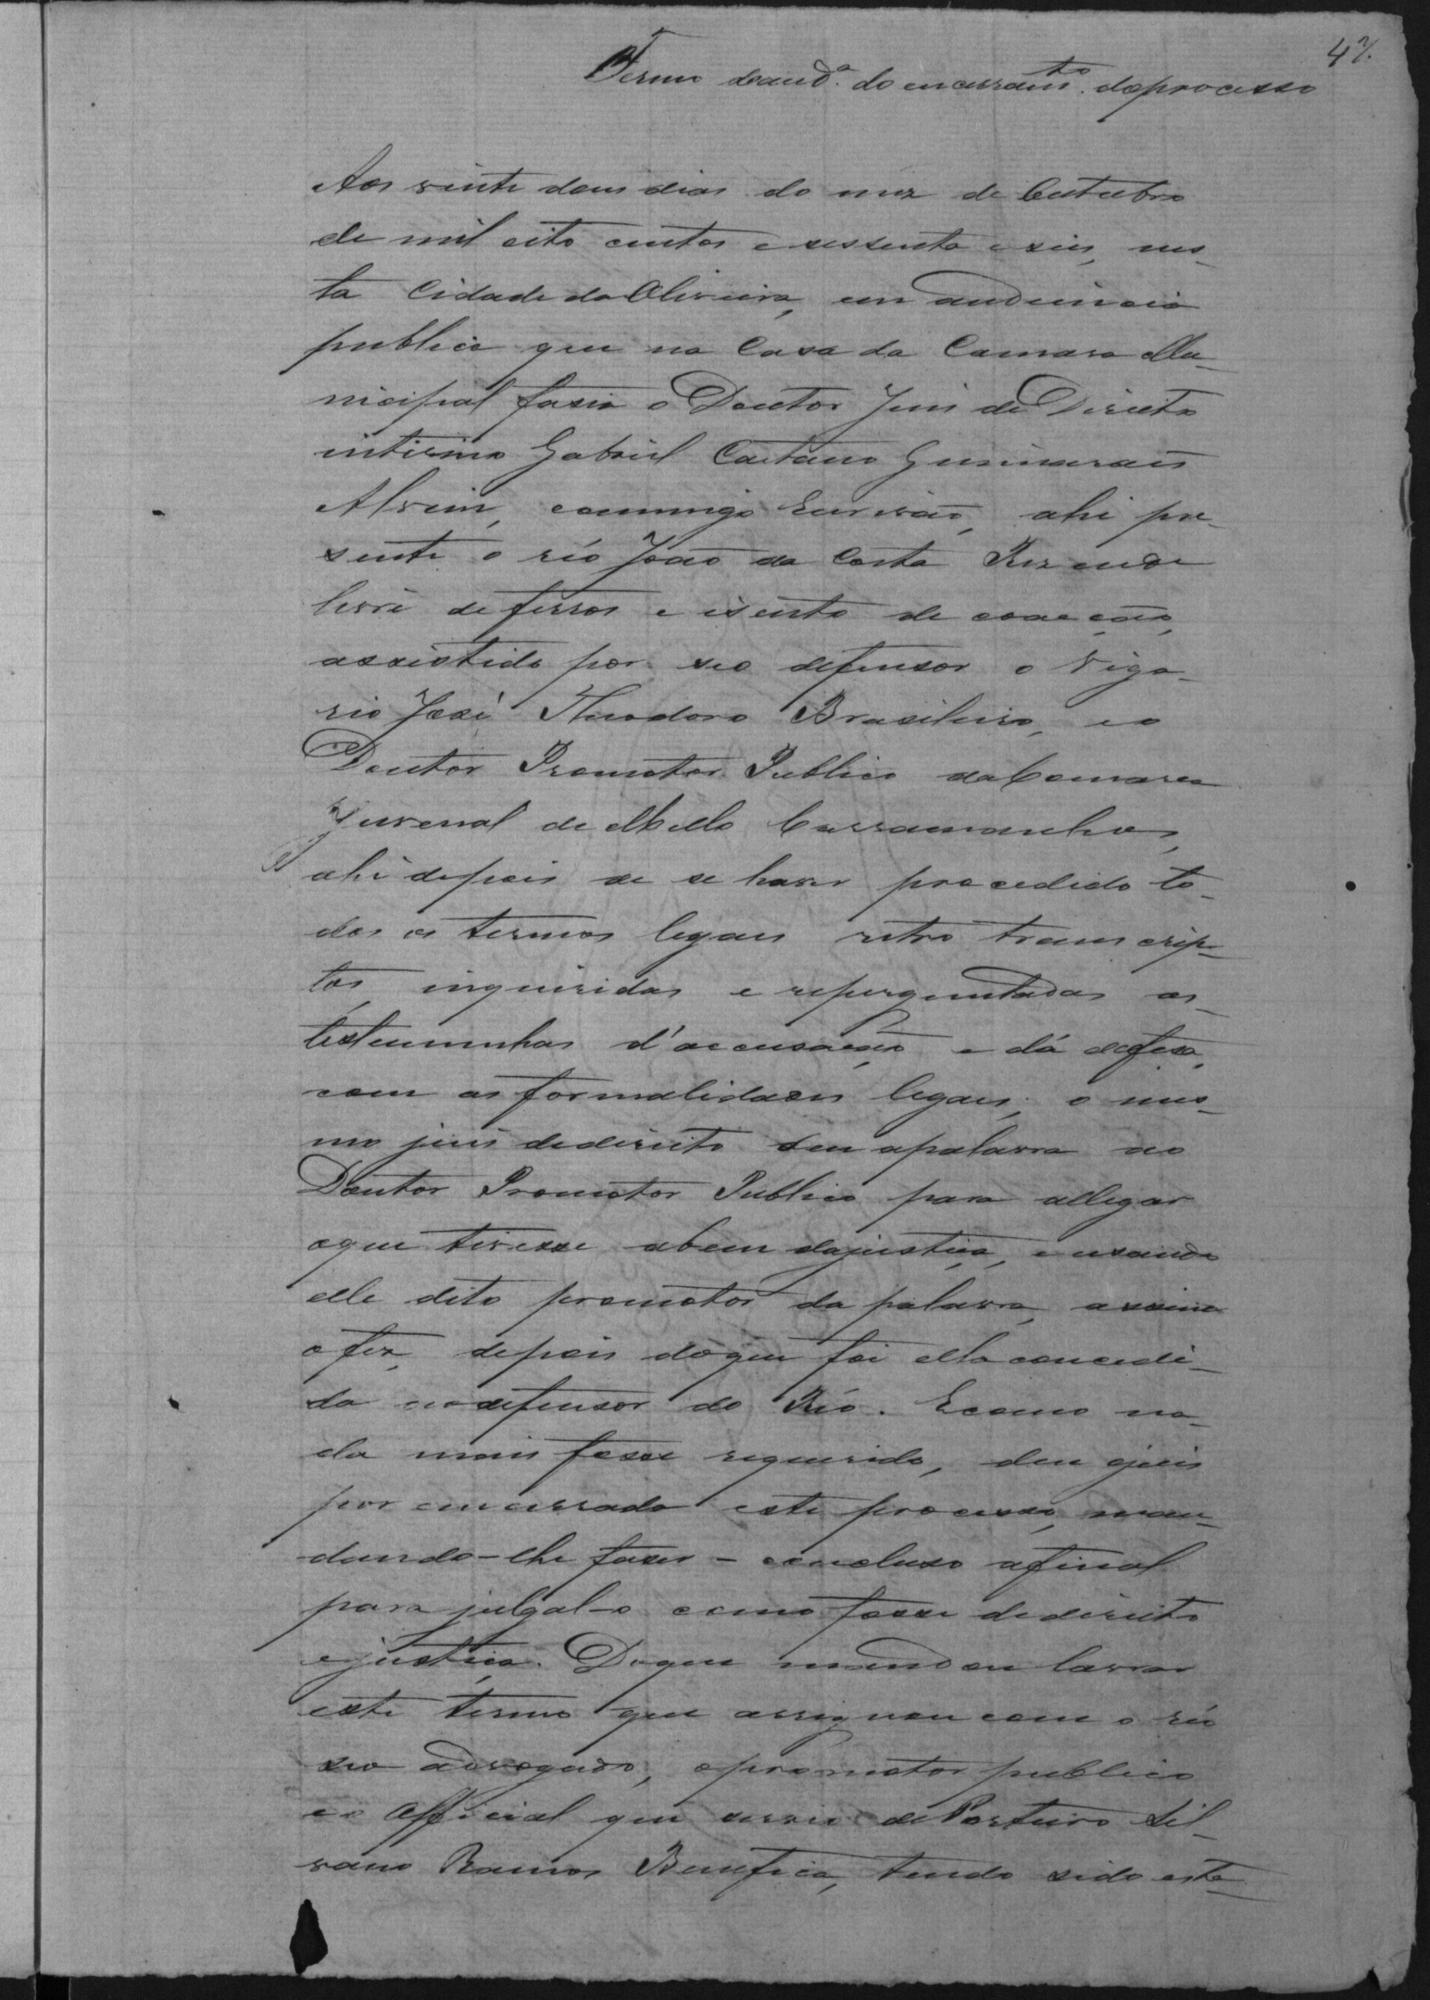 47.
Termo d'aud.ª do encerram.to do processo
Aos vinte dous dias do mez de Outubro
de mil oito centos e sessenta e seis, nes-
ta Cidade da Oliveira, em audiencia
publica que na Casa da Camara Mu-
nicipal fasia o Doutor Juis de Direito
interino Gabriel Caetano Guimarães
Alvim, commigo Escrivão, ahi pre-
sente o réo João da Costa Rezende
livre de ferros e isento de coacção,
assistido por seo defensor o Viga-
rio José Theodoro Brasileiro, e o
Doutor Promotor Publico da Comarca
Juvenal de Mello Carramanhos,
ahi depois de se haver procedido to-
dos os termos legaes retro transcrip-
tos, inqueridas e reperguntadas as
testemunhas d'accusação e dá defesa,
com as formalidades legaes; o mes-
mo juis de direito deu a palavra ao
Doutor Promotor Publico para allegar
o que tivesse a bem da justiça, e usando
elle dito promotor da palavra, assim
o fez, depois do que foi ella concedi-
da ao defensor do Réo. E como na-
da mais fosse requerido, deu o juis
por encerrado este processo, man-
dando-lhe faser-concluso a final
para julgal-o como fosse de direito
e justiça. Do que mandou lavrar
este termo que assignou com o réo
seo advogado, o promotor publico
e o Official que servio de Porteiro Sil-
vano Ramos Bemfica, tendo sido este